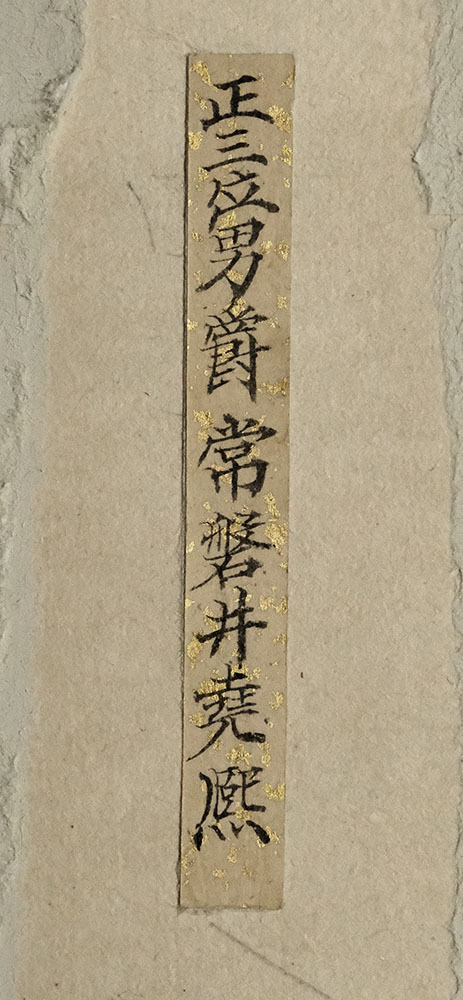 正三位男爵 常磐井堯熈